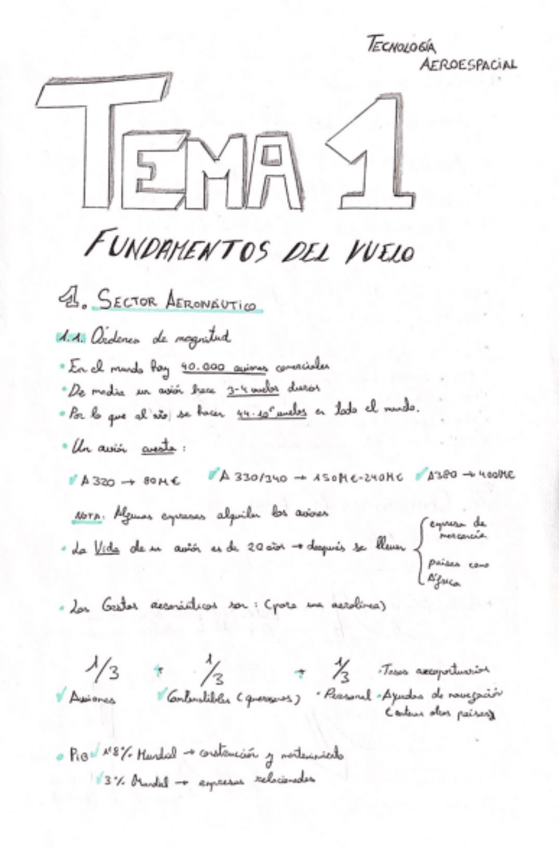 TECNOLOGÍA
AEROESPACIAL
TEMA 1
FUNDAMENTOS DEL VUELO
1. SECTOR AERONÁUTICO
1.1. Órdenes de magnitud
• En el mundo hay 40.000 aviones comerciales
• De media un avión hace 3-4 vuelos diarios
• Por lo que al año se hacen 44·10⁶ vuelos en todo el mundo.
• Un avión cuesta:
✓ A320 → 80M€ ✓ A 330/340 → 150M€-240M€ ✓ A380 → 400M€
NOTA: Algunas empresas alquilan los aviones
• La Vida de un avión es de 20 años → después se llevan { empresa de mercancía
países como África
• Los Gastos aeronáuticos son: (para una aerolínea)
1/3 + 1/3 + 1/3 • Tasas aeroportuarias
✓ Aviones ✓ Combustibles (queroseno) • Personal • Ayudas de navegación
(entrar otros países)
• PIB ✓ 1'8% Mundial → construcción y mantenimiento
✓ 3% Mundial → empresas relacionadas